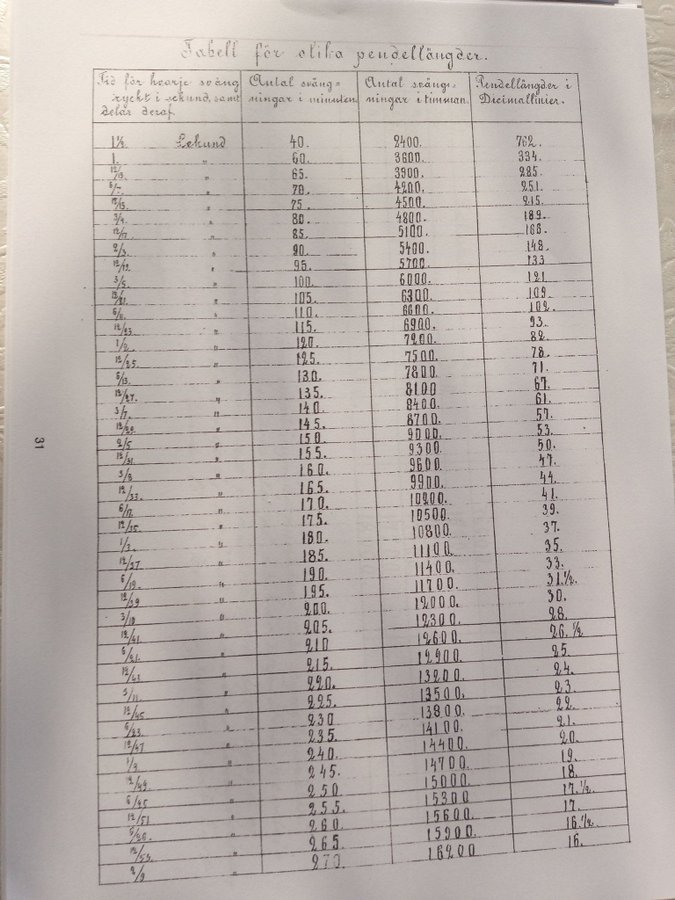 Tabell för olika pendellängder.
Tid för hvarje sväng Antal sväng= Antal sväng= Pendellängder i
ryckt i sekund, samt ningar i minuten. ningar i timman. Decimallinier.
delar deraf.
1½. Sekund 40. 2400. 762.
1. " 60. 3600. 334.
12/13. " 65. 3900. 285.
6/7. " 70. 4200. 251.
12/15. " 75. 4500. 215.
3/4. " 80. 4800. 189.
12/17. " 85. 5100. 168.
2/3. " 90. 5400. 148.
12/19. " 95. 5700. 133
3/5. " 100. 6000. 121
12/21. " 105. 6300. 109.
6/11. " 110. 6600. 102.
12/23. " 115. 6900. 93.
1/2. " 120. 7200. 82.
12/25. " 125. 7500. 78.
6/13. " 130. 7800. 71.
12/27. " 135. 8100 67.
3/7. " 140. 8400. 61.
12/29. " 145. 8700. 57.
2/5 " 150. 9000. 53.
12/31. " 155. 9300. 50.
3/8 " 160. 9600. 47.
12/33. " 165. 9900. 44.
6/17. " 170. 10200. 41.
12/35. " 175. 10500. 39.
1/3. " 180. 10800. 37.
12/37 " 185. 11100. 35.
6/19. " 190. 11400. 33.
12/39 " 195. 11700. 31.½
3/10 " 200. 12000. 30.
12/41. " 205. 12300. 28.
6/21. " 210 12600. 26.½
12/43 " 215. 12900. 25.
3/11. " 220. 13200. 24.
12/45 " 225. 13500. 23.
6/23. " 230 13800. 22.
12/47 " 235. 14100. 21.
" 240. 14400. 20.
12/49 " 245. 14700. 19.
6/25 " 250. 15000. 18.
12/51 " 255. 15300 17.½
" 260. 15600. 17.
12/53. " 265. 15900. 16.½
2/9 " 270. 16200 16.
31